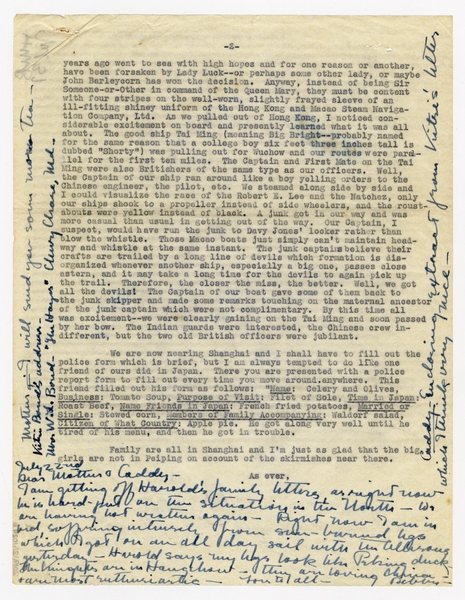 -2-
years ago went to sea with high hopes and for one reason or another,
have been forsaken by Lady Luck--or perhaps some other lady, or maybe
John Barleycorn has won the decision. Anyway, instead of being Sir
Someone-or-Other in command of the Queen Mary, they must be content
with four stripes on the well-worn, slightly frayed sleeve of an
ill-fitting shiney uniform of the Hong Kong and Macao Steam Naviga-
tion Company, Ltd. As we pulled out of Hong Kong, I noticed con-
siderable excitement on board and presently learned what it was all
about. The good ship Tai Ming (meaning Big Bright--probably named
for the same reason that a college boy six feet three inches tall is
dubbed "Shorty") was pulling out for Wuchow and our routes were paral-
lel for the first ten miles. The Captain and First Mate on the Tai
Ming were also Britishers of the same type as our officers. Well,
the Captain of our ship ran around like a boy yelling orders to the
Chinese engineer, the pilot, etc. We steamed along side by side and
I could visualize the race of the Robert E. Lee and the Natchez, only
our ships shook to a propeller instead of side wheelers, and the roust-
abouts were yellow instead of black. A junk got in our way and was
more casual than usual in getting out of the way. Our Captain, I
suspect, would have run the junk to Davy Jones' locker rather than
blow the whistle. Those Macao boats just simply can't maintain head-
way and whistle at the same instant. The junk captains believe their
crafts are trailed by a long line of devils which formation is dis-
organized whenever another ship, especially a big one, passes close
astern, and it may take a long time for the devils to again pick up
the trail. Therefore, the closer the miss, the better. Well, we got
all the devils! The Captain of our boat gave some of them back to
the junk skipper and made some remarks touching on the maternal ancestor
of the junk captain which were not complimentary. By this time all
was excitement--we were clearly gaining on the Tai Ming and soon passed
by her bow. The Indian guards were interested, the Chinese crew in-
different, but the two old British officers were jubilant.
We are now nearing Shanghai and I shall have to fill out the
police form which is brief, but I am always tempted to do like one
friend of ours did in Japan. There you are presented with a police
report form to fill out every time you move around anywhere. This
friend filled out his form as follows: "Name: Celery and Olives,
Business: Tomato Soup, Purpose of Visit: Filet of Sole, Time in Japan:
Roast Beef, Name Friends in Japan: French fried potatoes, Married or
Single: Stewed corn, Members of Family Accompanying: Waldorf salad,
Citizen of What Country: Apple pie. He got along very well until he
tired of his menu, and then he got in trouble.
Family are all in Shanghai and I'm just as glad that the big
girls are not in Peiping on account of the skirmishes near there.
As ever,
July 22nd
Dear Mother & Caddy-
I am getting off Harold's family letters, as right now
he is hard put on the situation in the North - We
are
Right now I am in
suffering intensely from sun-burned legs
which I got on an all day sail with
yesterday - Harold says my legs look like Peking duck
are in Hangchow - They are loving China &
are most enthusiastic - Love to all -
Mother - I will send you some more Tea -
address
Mrs. Bond - "The Boxys" Chevy Chase, Md.
Caddy - Enclosing extract from letter
which I think very nice -